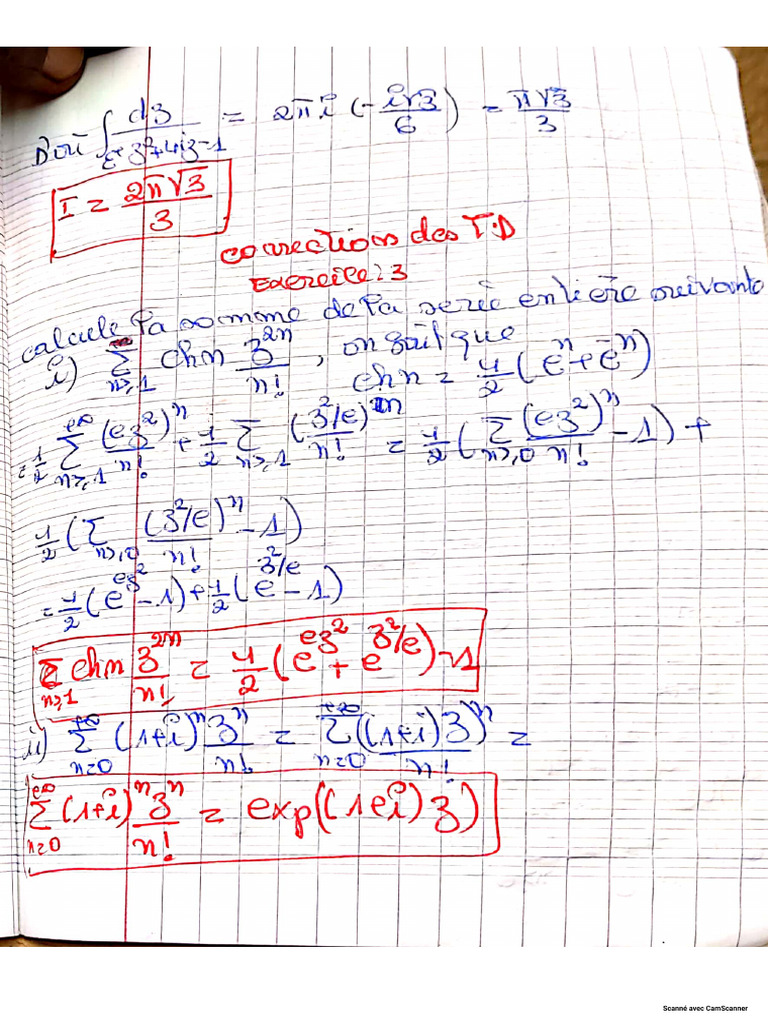 D'où ∫ dz / z²+4iz-1 = 2πi (-i√3/6) = π√3/3
I = 2π√3/3
corrections des T.D
Exercice: 3
calcule la somme de la serie entière suivante
i) Σ n≥1 +∞ chn z^2n/n! , on sait que
chn = 1/2 (e^n + e^-n)
= 1/2 Σ n≥1 +∞ (ez²)^n/n! + 1/2 Σ n≥1 (z²/e)^n/n! = 1/2 (Σ n≥0 (ez²)^n/n! - 1) +
1/2 (Σ n≥0 (z²/e)^n/n! - 1)
= 1/2 (e^ez² - 1) + 1/2 (e^z²/e - 1)
Σ n≥1 chn z^2n/n! = 1/2 (e^ez² + e^z²/e) - 1
ii) Σ n=0 +∞ (1+i)^n z^n/n! = Σ n=0 +∞ ((1+i)z)^n/n! =
Σ n=0 +∞ (1+i)^n z^n/n! = exp((1+i)z)
Scanné avec CamScanner